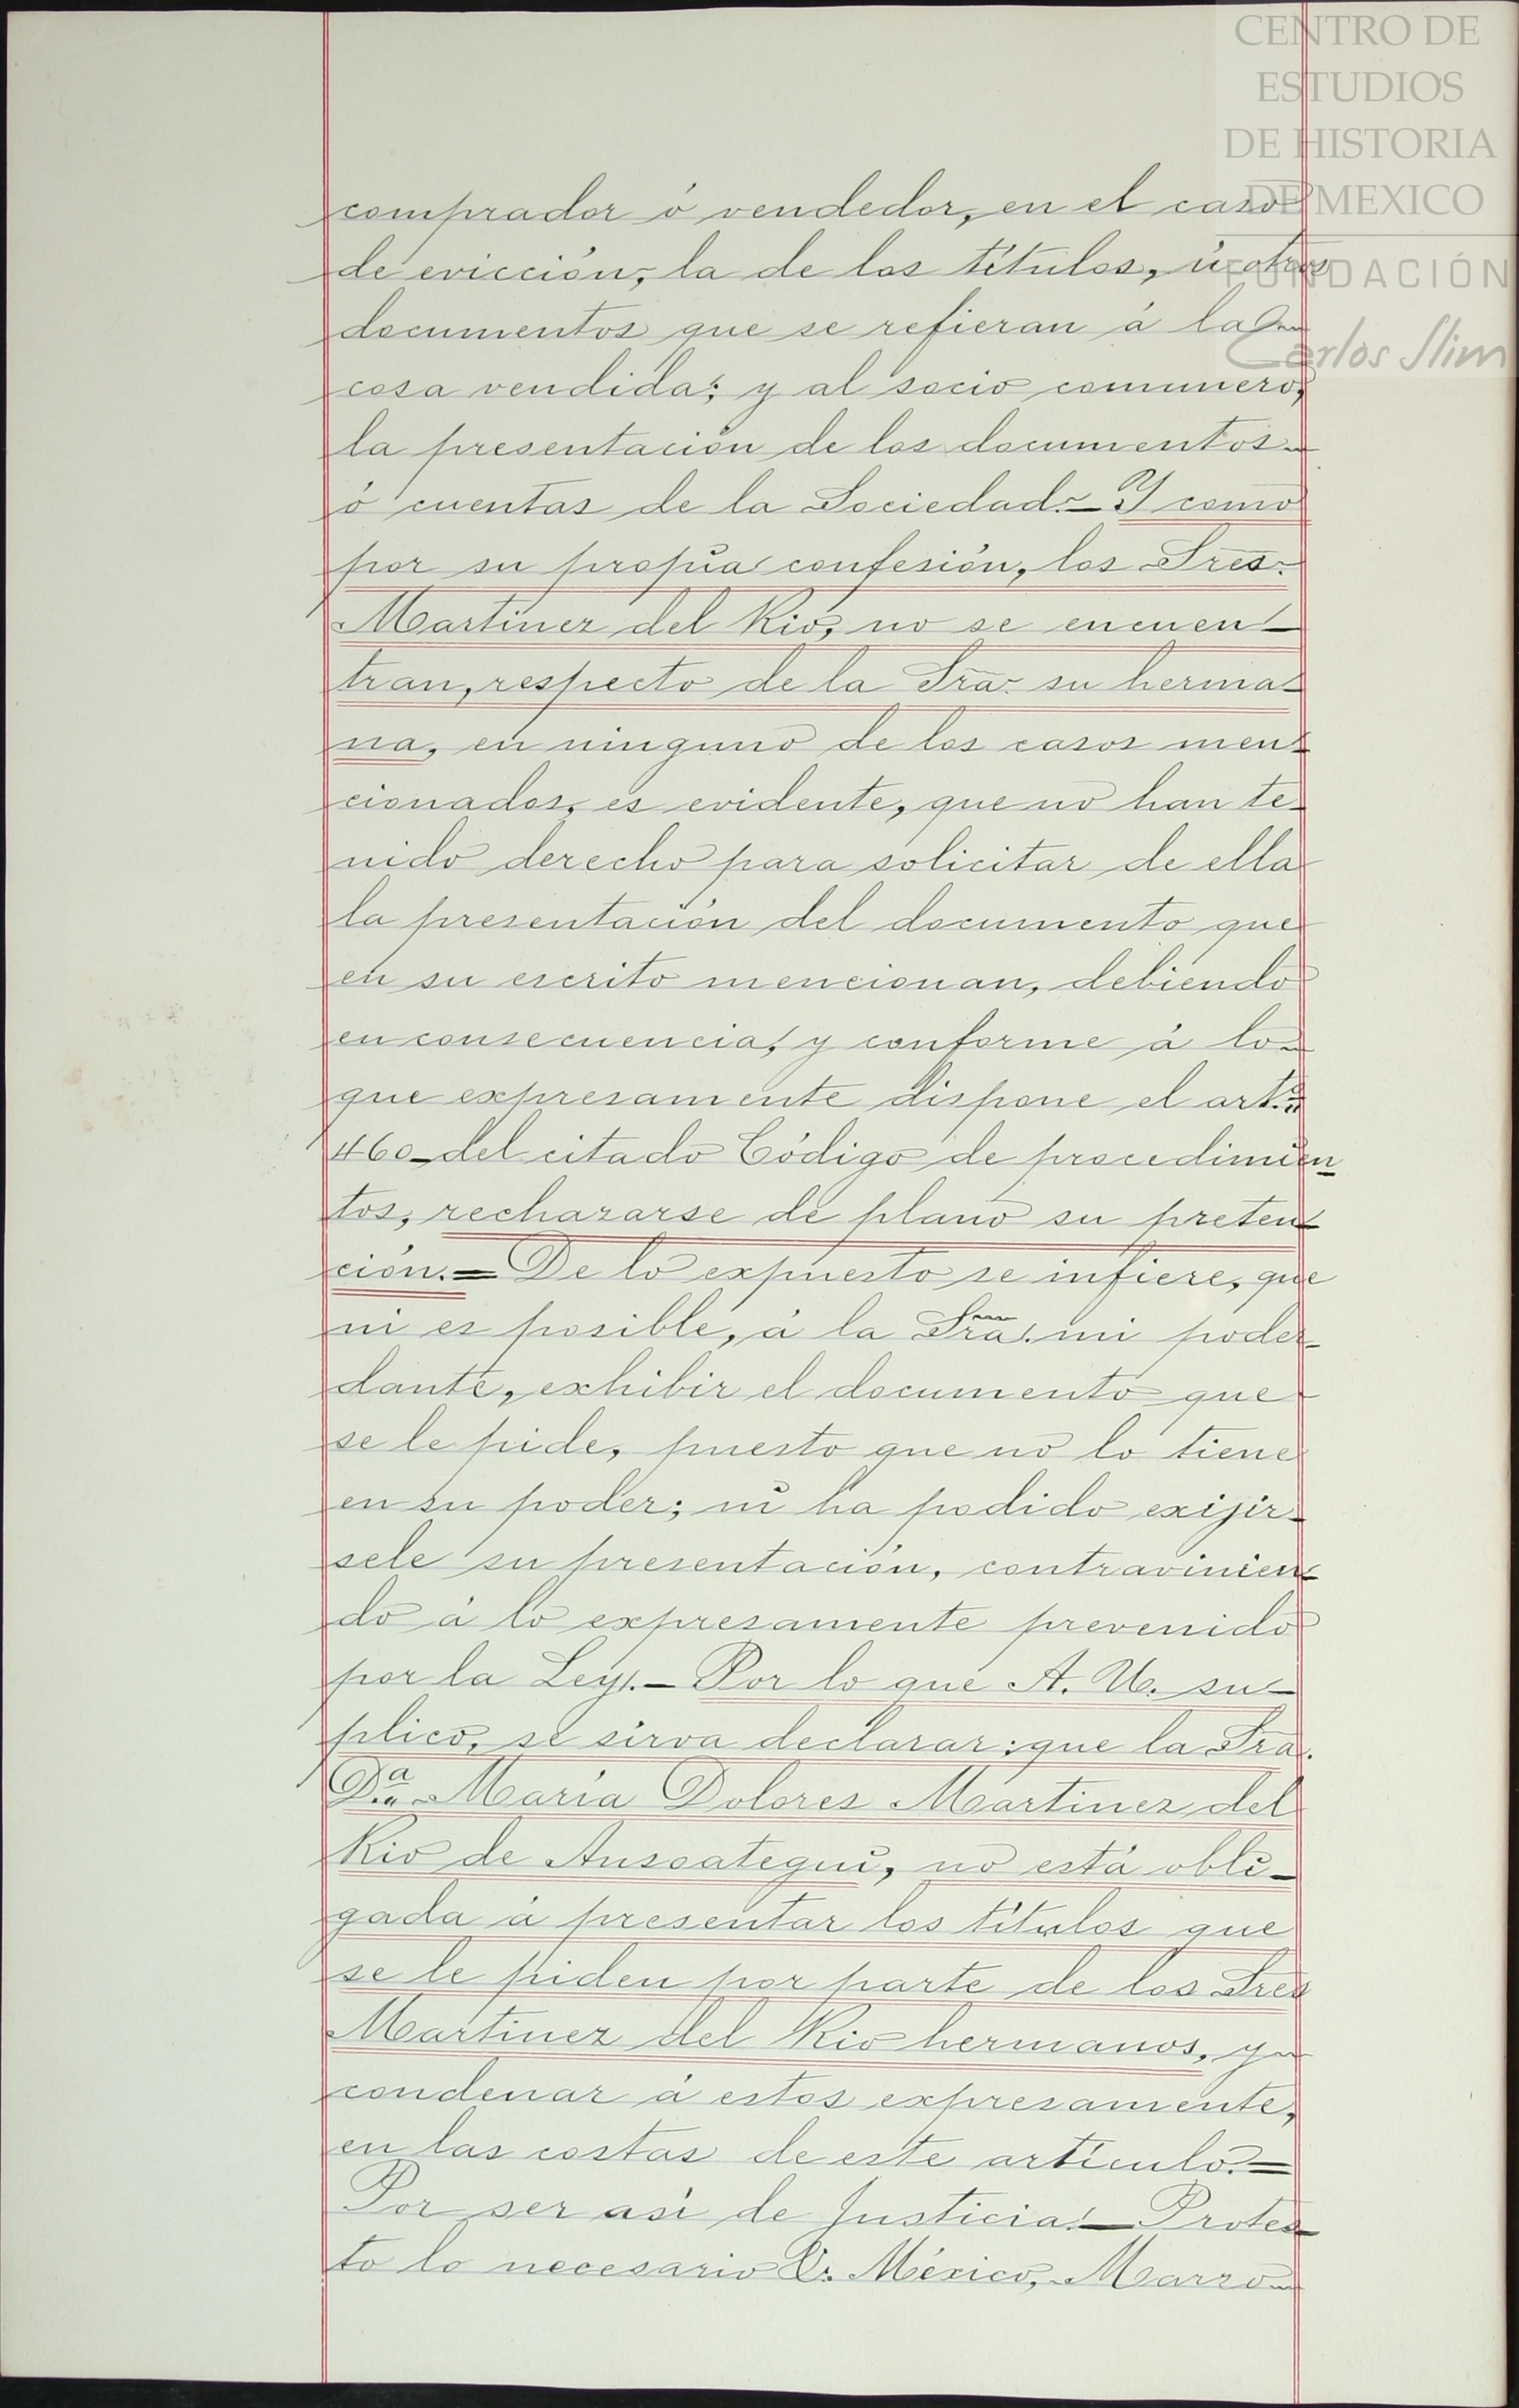 CENTRO DE
ESTUDIOS
DE HISTORIA
DE MEXICO
FUNDACIÓN
Carlos Slim
comprador ó vendedor, en el caso
de evicción, la de los títulos, ú otros
documentos que se refieran á la
cosa vendida; y al socio comunero,
la presentación de los documentos
ó cuentas de la Sociedad.- Y como
por su propia confesión, los Sres.
Martinez del Rio, no se encuen-
tran, respecto de la Sra. su herma-
na, en ninguno de los casos men-
cionados, es evidente, que no han te-
nido derecho para solicitar de ella
la presentación del documento que
en su escrito mencionan, debiendo
en consecuencia, y conforme á lo
que expresamente dispone el art.º
460 del citado Código de procedimien
tos, rechazarse de plano su preten-
ción.= De lo expuesto se infiere, que
ni es posible, á la Sra. mi poder-
dante, exhibir el documento que
se le pide, puesto que no lo tiene
en su poder; ni ha podido exijir-
sele su presentación, contravinien-
do á lo expresamente prevenido
por la Ley.- Por lo que A. U. su-
plico, se sirva declarar: que la Sra.
D.ª María Dolores Martinez del
Rio de Ansoategui, no está obli-
gada á presentar los títulos que
se le piden por parte de los Sres
Martinez del Rio hermanos, y
condenar á estos expresamente,
en las costas de este artículo.=
Por ser asi de Justicia.- Protes-
to lo necesario &. México, Marzo